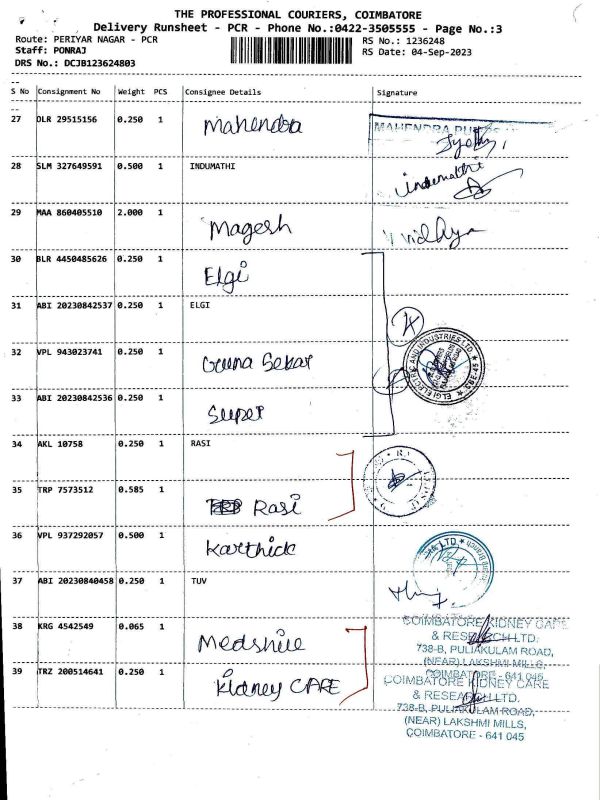 THE PROFESSIONAL COURIERS, COIMBATORE
Delivery Runsheet - PCR - Phone No.:0422-3505555 - Page No.:3
Route: PERIYAR NAGAR - PCR
RS No.: 1236248
Staff: PONRAJ
RS Date: 04-Sep-2023
DRS No.: DCJB123624803
S No Consignment No Weight PCS Consignee Details Signature
27 DLR 29515156 0.250 1 Mahendra MAHENDRA
28 SLM 327649591 0.500 1 INDUMATHI indumathi
29 MAA 860405510 2.000 1 Magesh Vidhya
30 BLR 4450485626 0.250 1 Elgi
31 ABI 20230842537 0.250 1 ELGI
32 VPL 943023741 0.250 1 Guna Sekar
ELGI ELECTRIC AND INDUSTRIES LTD
33 ABI 20230842536 0.250 1 Super
34 AKL 10758 0.250 1 RASI
35 TRP 7573512 0.585 1 Rasi
36 VPL 937292057 0.500 1 Karthick
37 ABI 20230840458 0.250 1 TUV
38 KRG 4542549 0.065 1 Medshile
COIMBATORE KIDNEY CARE
& RESEARCH LTD.
738-B, PULIAKULAM ROAD,
(NEAR) LAKSHMI MILLS,
COIMBATORE - 641 045
39 TRZ 200514641 0.250 1 Kidney CARE
COIMBATORE KIDNEY CARE
& RESEARCH LTD.
738-B, PULIAKULAM ROAD,
(NEAR) LAKSHMI MILLS,
COIMBATORE - 641 045